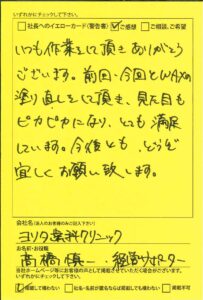 いずれかにチェックして下さい。
□社長へのイエローカード(警告書) ☑ご感想 □ご相談、ご希望
いつも作業をして頂きありがとう
ございます。前回・今回とWAXの
塗り直しをして頂き、見た目も
ピカピカになり、とても満足
しています。今後とも、どうぞ
宜しくお願い致します。
会社名(法人のお客様のみご記入下さい)
ヨリタ歯科クリニック
お名前・お役職
高橋慎一・経営サポーター
当社ホームページ等にお客様の声として掲載させていただく場合がございます。
いずれかにチェックして下さい。
☑掲載して構わない □社名・名前が匿名ならば掲載しても構わない □掲載不可